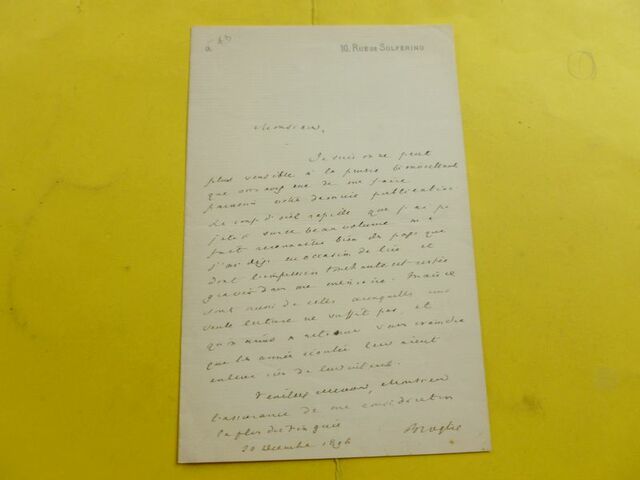 10, RUE DE SOLFERINO
Monsieur,
Je suis on ne peut
plus sensible à la pensée bienveillante
que vous avez eue de me faire
parvenir votre dernière publication
Le coup d'œil rapide que j'ai pu
jeter sur ce beau volume m'a
fait reconnaître bien des pages que
j'ai déjà eu occasion de lire et
dont l'impression touchante est restée
gravée dans ma mémoire. Mais ce
sont aussi de celles auxquelles une
seule lecture ne suffit pas, et
qu'on aime à retrouver sans craindre
que les années écoulées leur aient
enlevé rien de leur
Veuillez agréer, Monsieur
l'assurance de ma considération
la plus distinguée
30 décembre 1896 Broglie